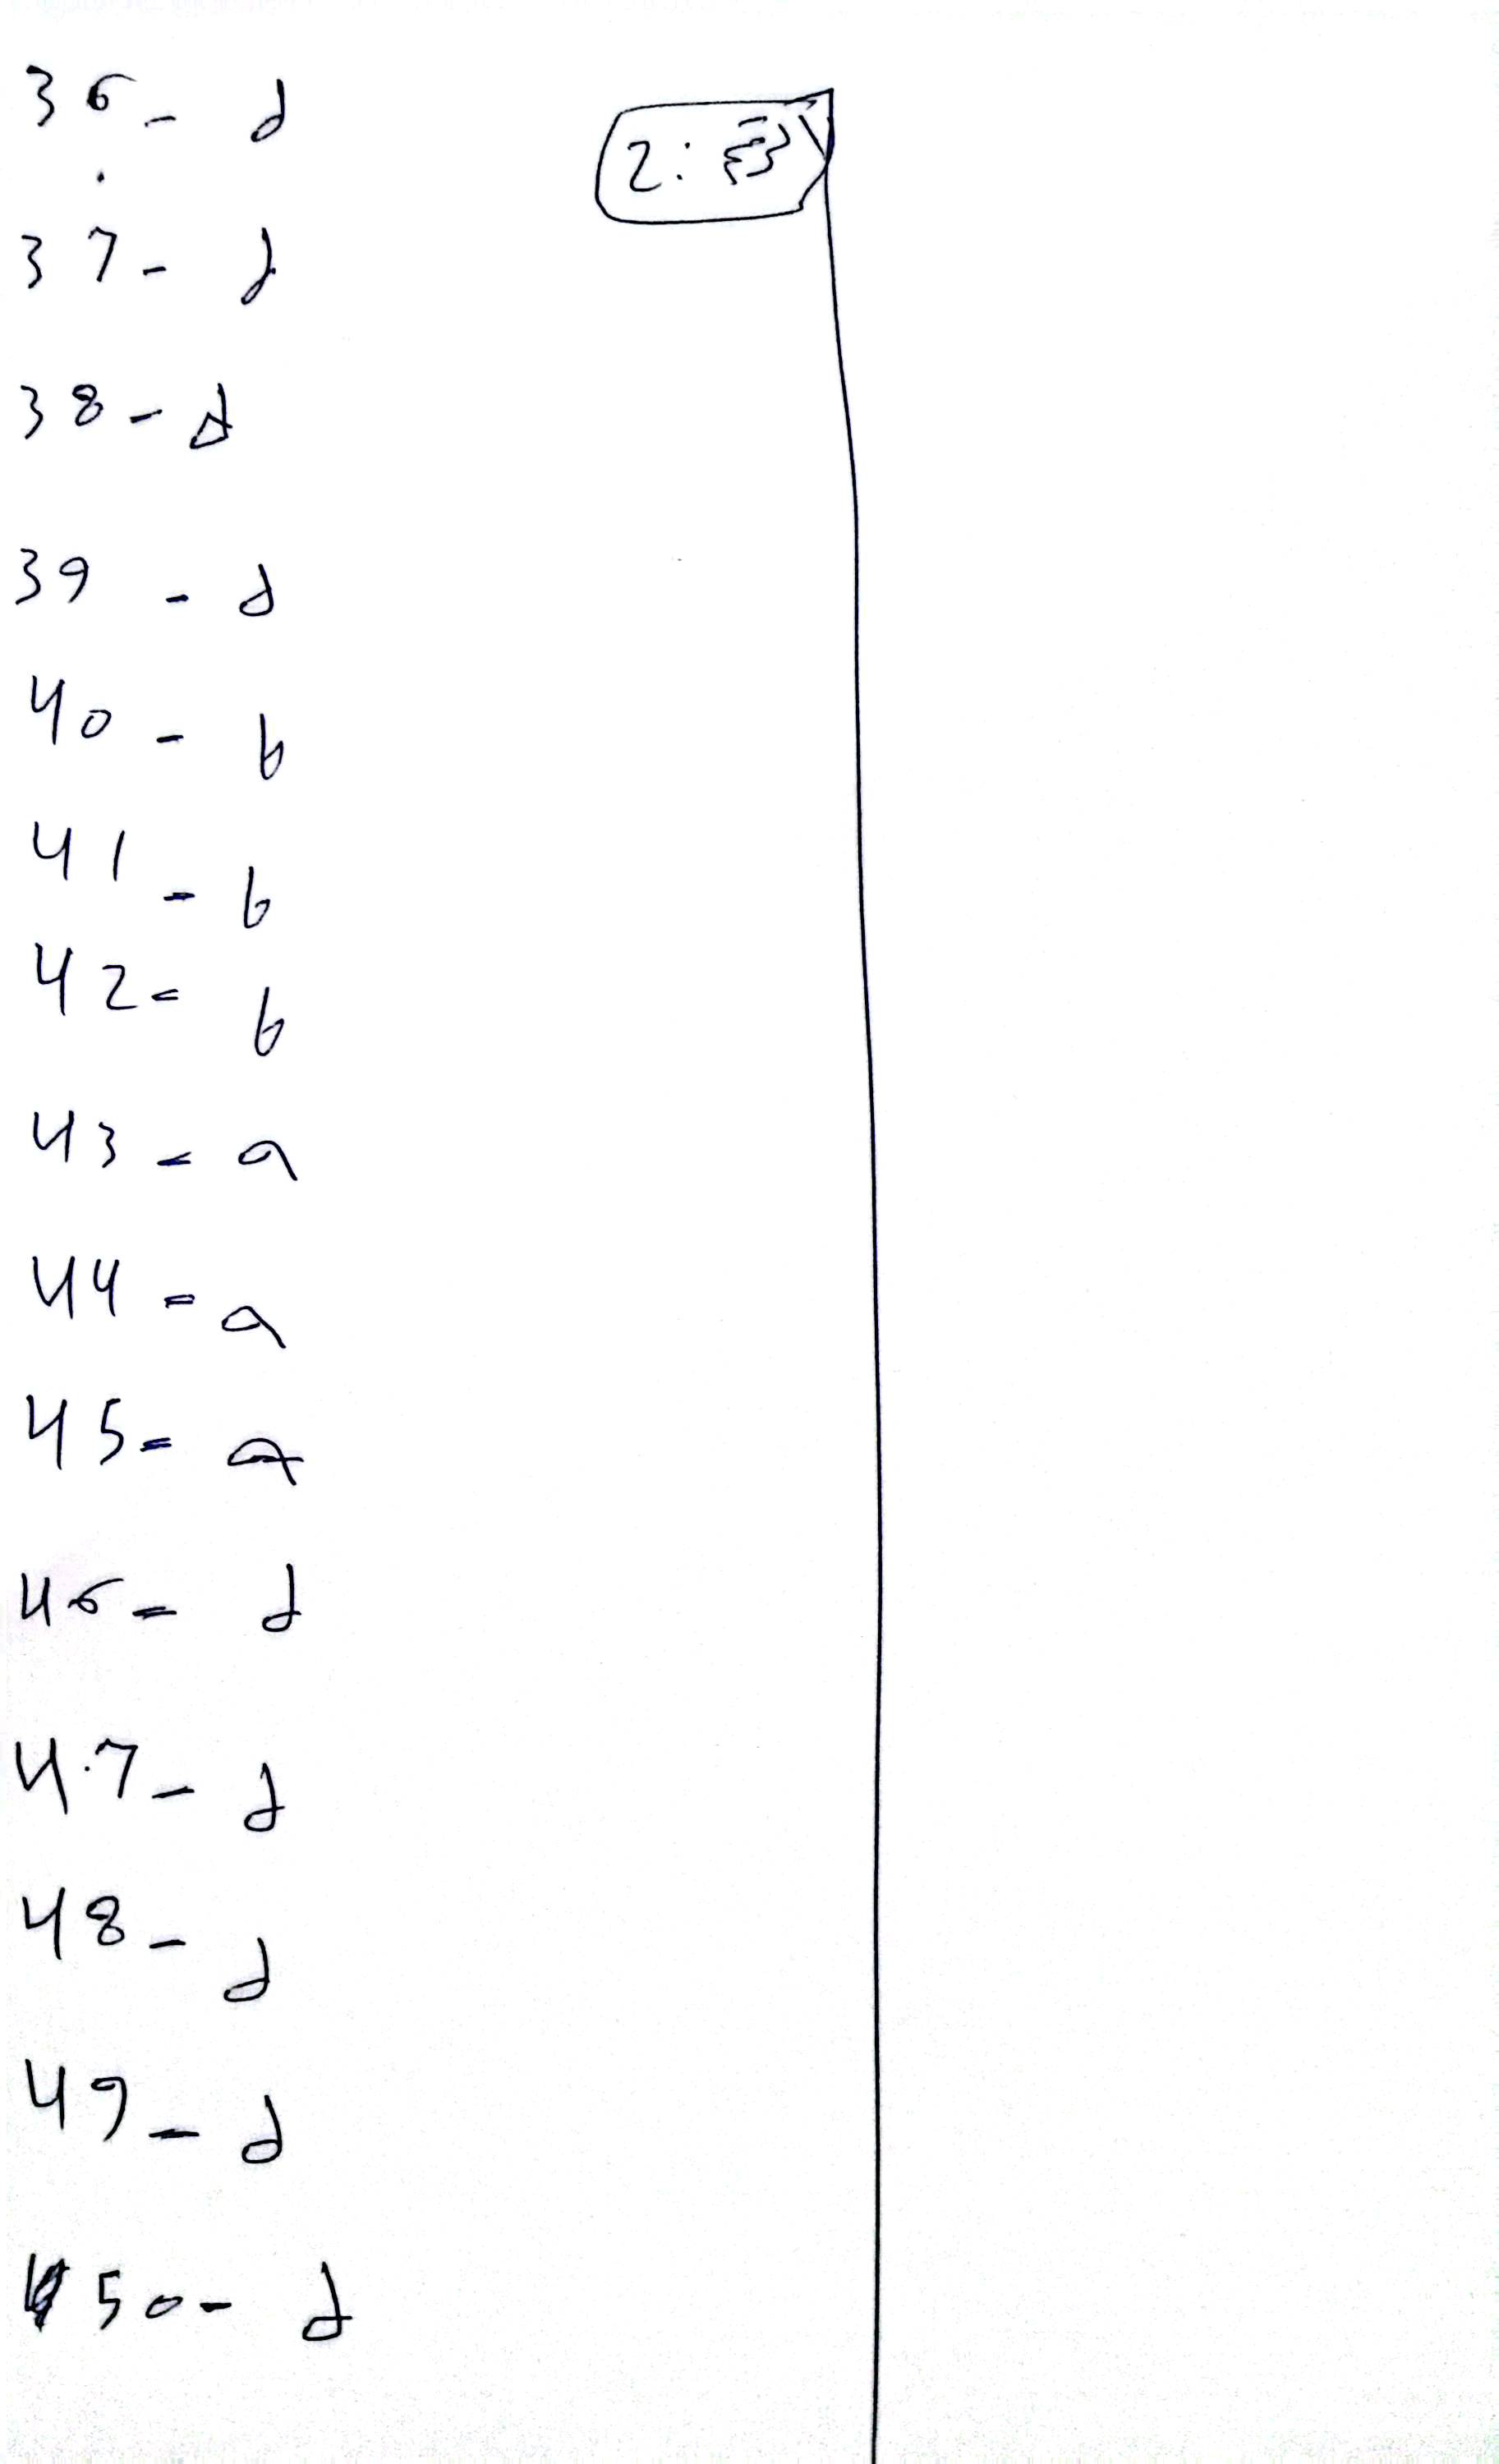 36- d
37- d
38- d
39 - d
40 - b
41 - b
42- b
43 - a
44 - a
45- a
46- d
47- d
48- d
49- d
50- d
2: